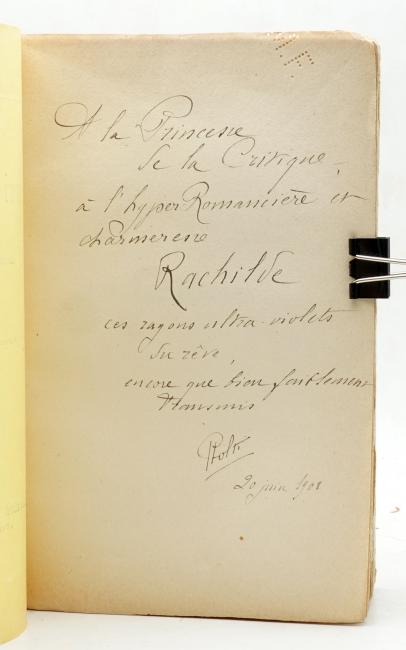 A la Princesse
de la Critique,
à l'hyper Romancière et
charmeresse
Rachilde
ces rayons ultra-violets
du rêve,
encore que bien faiblement
transmis
20 juin 1908